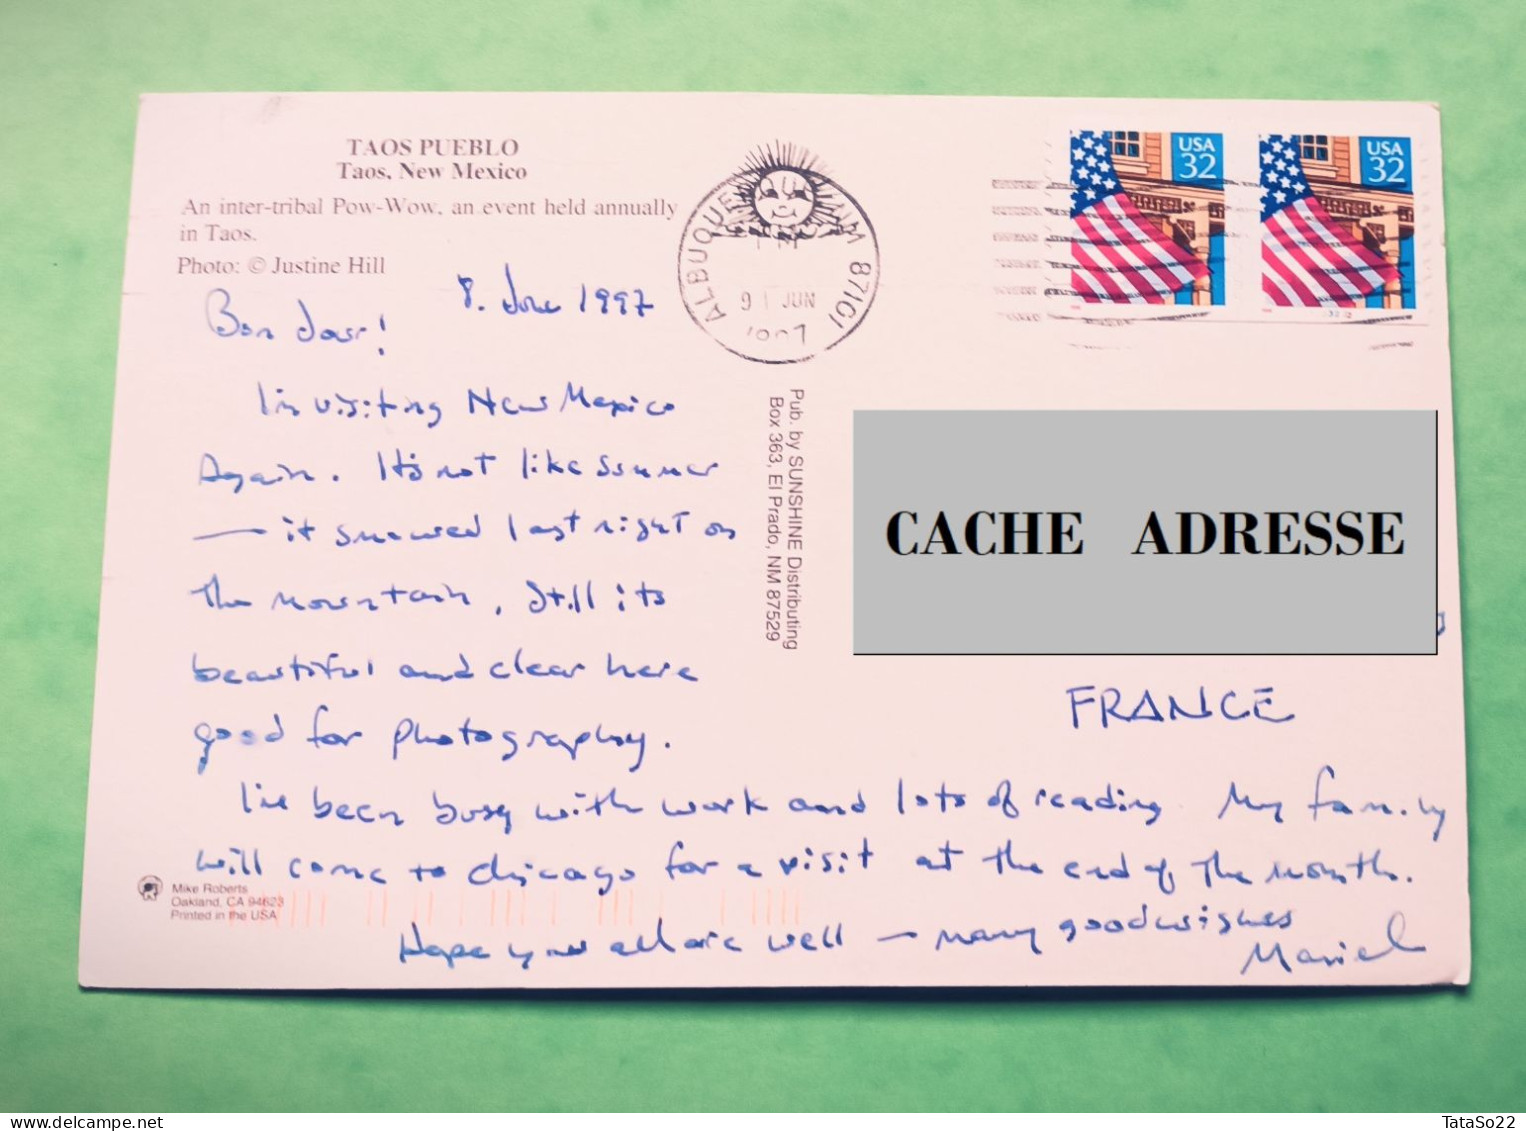 TAOS PUEBLO
Taos, New Mexico
An inter-tribal Pow-Wow, an event held annually
in Taos.
Photo: © Justine Hill
8. June 1997
Bon Jour!
I'm visiting New Mexico
Again. It's not like summer
— it snowed last night on
the mountain, still its
beautiful and clear here
good for photography.
I've been busy with work and lots of reading. My family
will come to chicago for a visit at the end of the month.
Hope you all are well — many good wishes
ALBUQUERQUE NM 87101
PM
9 JUN
1997
USA
32
USA
32
Pub. by SUNSHINE Distributing
Box 363, El Prado, NM 87529
CACHE ADRESSE
FRANCE
Mike Roberts
Oakland, CA 94623
Printed in the USA
TataSo22